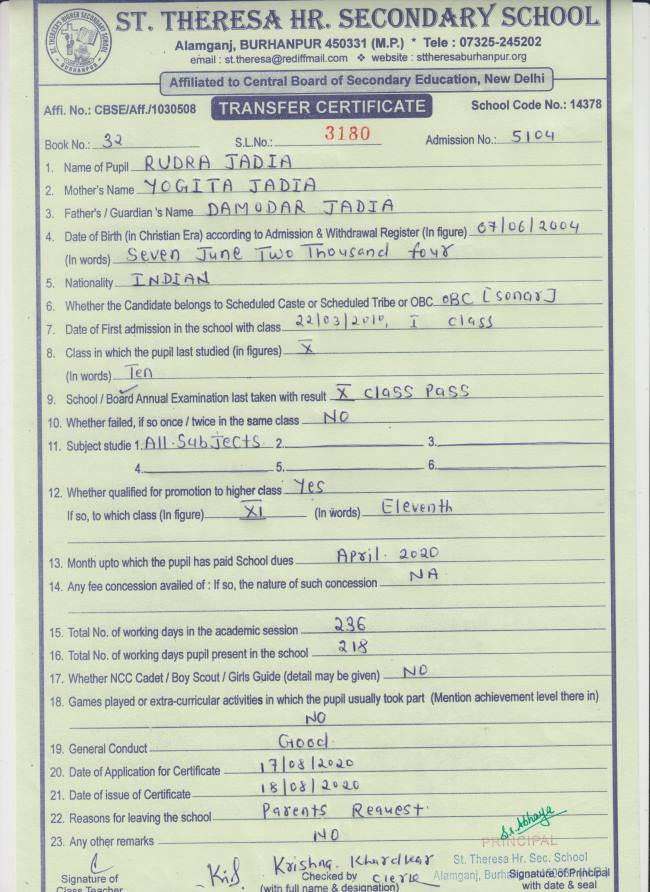 ST. THERESA HR. SECONDARY SCHOOL
Alamganj, BURHANPUR 450331 (M.P.) * Tele : 07325-245202
email : st.theresa@rediffmail.com ❖ website : sttheresaburhanpur.org
Affiliated to Central Board of Secondary Education, New Delhi
Affi. No.: CBSE/Aff./1030508 TRANSFER CERTIFICATE School Code No.: 14378
Book No.: 32 S.L.No.: 3180 Admission No.: 5104
1. Name of Pupil RUDRA JADIA
2. Mother's Name YOGITA JADIA
3. Father's / Guardian 's Name DAMODAR JADIA
4. Date of Birth (in Christian Era) according to Admission & Withdrawal Register (In figure) 07/06/2004
(In words) Seven June Two Thousand four
5. Nationality INDIAN
6. Whether the Candidate belongs to Scheduled Caste or Scheduled Tribe or OBC OBC [Sonar]
7. Date of First admission in the school with class 22/03/2010, I class
8. Class in which the pupil last studied (in figures) X
(In words) Ten
9. School / Board Annual Examination last taken with result X class Pass
10. Whether failed, if so once / twice in the same class NO
11. Subject studie 1. All Subjects 2. 3.
4. 5. 6.
12. Whether qualified for promotion to higher class Yes
If so, to which class (In figure) XI (In words) Eleventh
13. Month upto which the pupil has paid School dues April. 2020
14. Any fee concession availed of : If so, the nature of such concession NA
15. Total No. of working days in the academic session 236
16. Total No. of working days pupil present in the school 218
17. Whether NCC Cadet / Boy Scout / Girls Guide (detail may be given) NO
18. Games played or extra-curricular activities in which the pupil usually took part (Mention achievement level there in)
NO
19. General Conduct Good
20. Date of Application for Certificate 17/08/2020
21. Date of issue of Certificate 18/08/2020
22. Reasons for leaving the school Parents Request.
23. Any other remarks NO
Sr. Abhaya
PRINCIPAL
St. Theresa Hr. Sec. School
Krishna. Khardkar
Signature of Checked by Clerk Alamganj, Signature of Principal
Class Teacher (with full name & designation) with date & seal